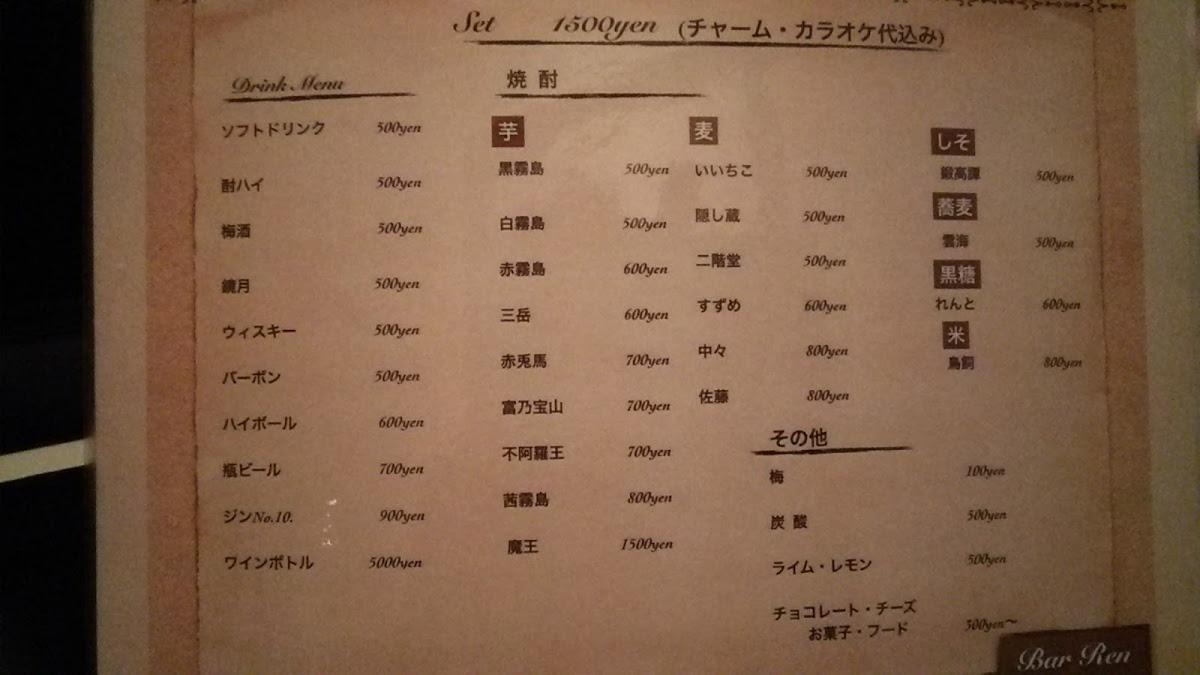 Set 1500yen (チャーム・カラオケ代込み)
Drink Menu
ソフトドリンク 500yen
酎ハイ 500yen
梅酒 500yen
鏡月 500yen
ウィスキー 500yen
バーボン 500yen
ハイボール 600yen
瓶ビール 700yen
ジンNo.10. 900yen
ワインボトル 5000yen
焼酎
芋
黒霧島 500yen
白霧島 500yen
赤霧島 600yen
三岳 600yen
赤兎馬 700yen
富乃宝山 700yen
不阿羅王 700yen
茜霧島 800yen
魔王 1500yen
麦
いいちこ 500yen
隠し蔵 500yen
二階堂 500yen
すずめ 600yen
中々 800yen
佐藤 800yen
しそ
鍛高譚 500yen
蕎麦
雲海 500yen
黒糖
れんと 600yen
米
鳥飼 800yen
その他
梅 100yen
炭酸 500yen
ライム・レモン 500yen
チョコレート・チーズ
お菓子・フード 500yen～
Bar Ren